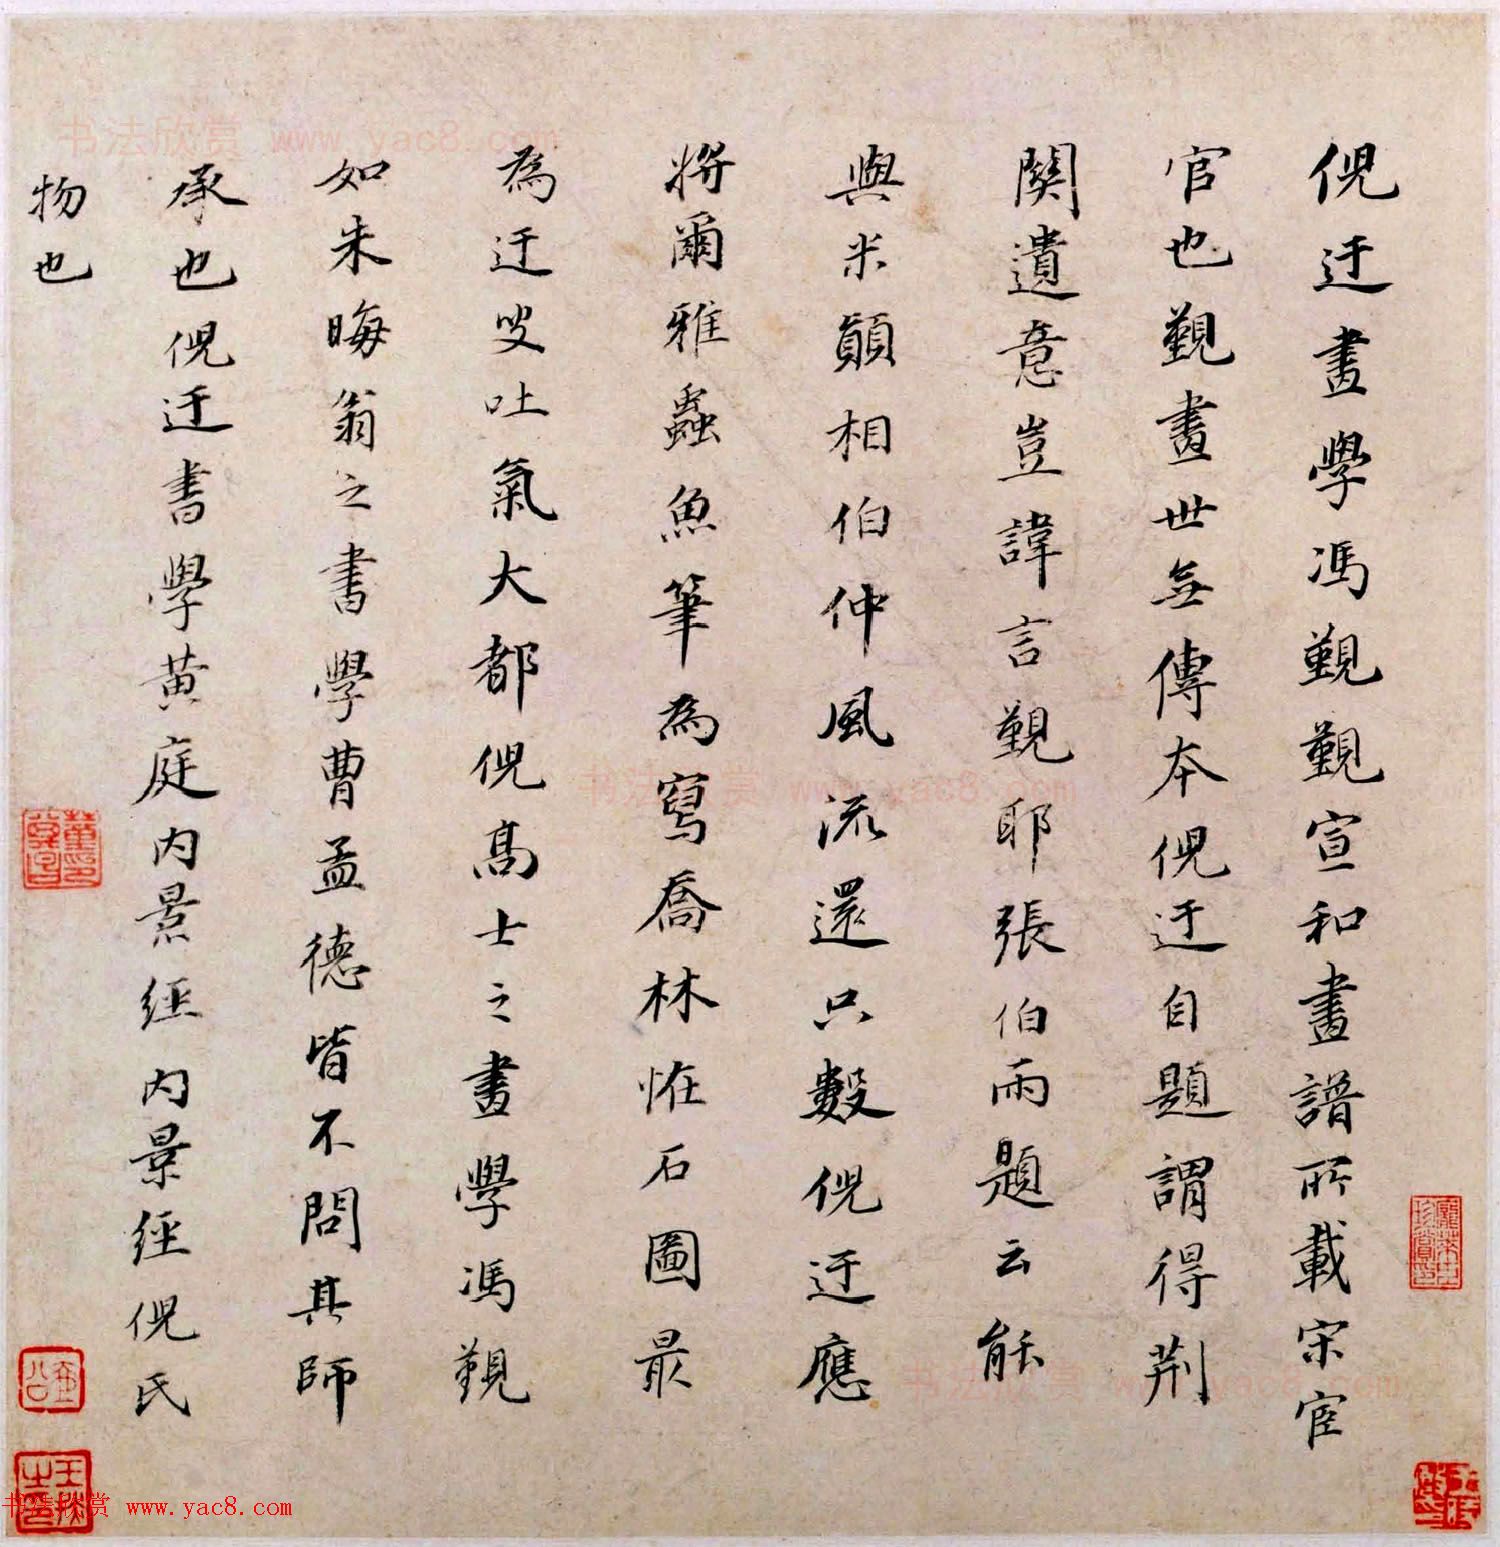 倪迂畫學馮覲覲宣和畫譜所載宋宦
官也覲畫世無傳本倪迂自題謂得荆
關遺意豈諱言覲耶張伯雨題云能
與米顛相伯仲風流還只數倪迂應
將爾雅蟲魚筆為寫喬林恠石圖最
為迂叟吐氣大都倪高士之畫學馮覲
如朱晦翁之書學曹孟德皆不問其師
承也倪迂書學黄庭内景經内景經倪氏
物也
董其昌印
书法欣赏 www.yac8.com
书法欣赏 www.yac8.com
书法欣赏 www.yac8.com
书法欣赏 www.yac8.com